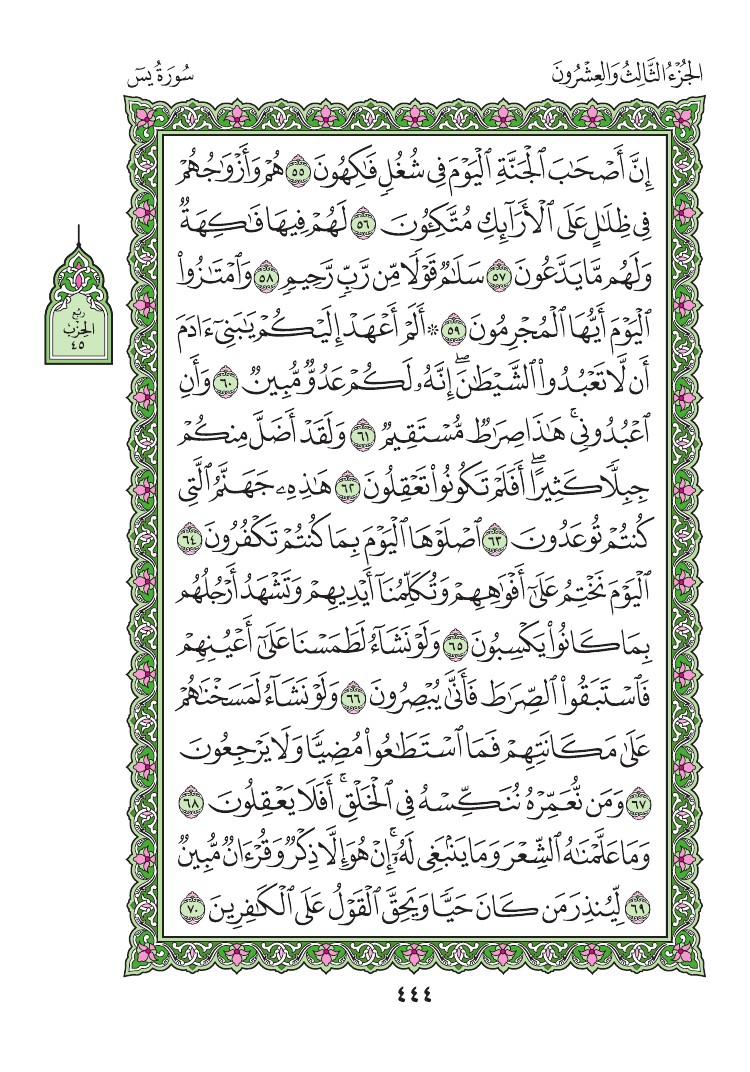 الجُزْءُ الثَّالِثُ وَالعِشْرُونَ
سُورَةُ يسٓ
إِنَّ أَصْحَٰبَ ٱلْجَنَّةِ ٱلْيَوْمَ فِى شُغُلٍ فَٰكِهُونَ ٥٥ هُمْ وَأَزْوَٰجُهُمْ
فِى ظِلَٰلٍ عَلَى ٱلْأَرَآئِكِ مُتَّكِـُٔونَ ٥٦ لَهُمْ فِيهَا فَٰكِهَةٌ
وَلَهُم مَّا يَدَّعُونَ ٥٧ سَلَٰمٌ قَوْلًا مِّن رَّبٍّ رَّحِيمٍ ٥٨ وَٱمْتَٰزُوا۟
ٱلْيَوْمَ أَيُّهَا ٱلْمُجْرِمُونَ ٥٩ ۞ أَلَمْ أَعْهَدْ إِلَيْكُمْ يَٰبَنِىٓ ءَادَمَ
أَن لَّا تَعْبُدُوا۟ ٱلشَّيْطَٰنَ ۖ إِنَّهُۥ لَكُمْ عَدُوٌّ مُّبِينٌ ٦٠ وَأَنِ
ٱعْبُدُونِى ۚ هَٰذَا صِرَٰطٌ مُّسْتَقِيمٌ ٦١ وَلَقَدْ أَضَلَّ مِنكُمْ
جِبِلًّا كَثِيرًا ۖ أَفَلَمْ تَكُونُوا۟ تَعْقِلُونَ ٦٢ هَٰذِهِۦ جَهَنَّمُ ٱلَّتِى
كُنتُمْ تُوعَدُونَ ٦٣ ٱصْلَوْهَا ٱلْيَوْمَ بِمَا كُنتُمْ تَكْفُرُونَ ٦٤
ٱلْيَوْمَ نَخْتِمُ عَلَىٰٓ أَفْوَٰهِهِمْ وَتُكَلِّمُنَآ أَيْدِيهِمْ وَتَشْهَدُ أَرْجُلُهُم
بِمَا كَانُوا۟ يَكْسِبُونَ ٦٥ وَلَوْ نَشَآءُ لَطَمَسْنَا عَلَىٰٓ أَعْيُنِهِمْ
فَٱسْتَبَقُوا۟ ٱلصِّرَٰطَ فَأَنَّىٰ يُبْصِرُونَ ٦٦ وَلَوْ نَشَآءُ لَمَسَخْنَٰهُمْ
عَلَىٰ مَكَانَتِهِمْ فَمَا ٱسْتَطَٰعُوا۟ مُضِيًّا وَلَا يَرْجِعُونَ
٦٧ وَمَن نُّعَمِّرْهُ نُنَكِّسْهُ فِى ٱلْخَلْقِ ۚ أَفَلَا يَعْقِلُونَ ٦٨
وَمَا عَلَّمْنَٰهُ ٱلشِّعْرَ وَمَا يَنۢبَغِى لَهُۥٓ ۚ إِنْ هُوَ إِلَّا ذِكْرٌ وَقُرْءَانٌ مُّبِينٌ
٦٩ لِّيُنذِرَ مَن كَانَ حَيًّا وَيَحِقَّ ٱلْقَوْلُ عَلَى ٱلْكَٰفِرِينَ ٧٠
رُبْع
الحِزْبُ
٤٥
٤٤٤